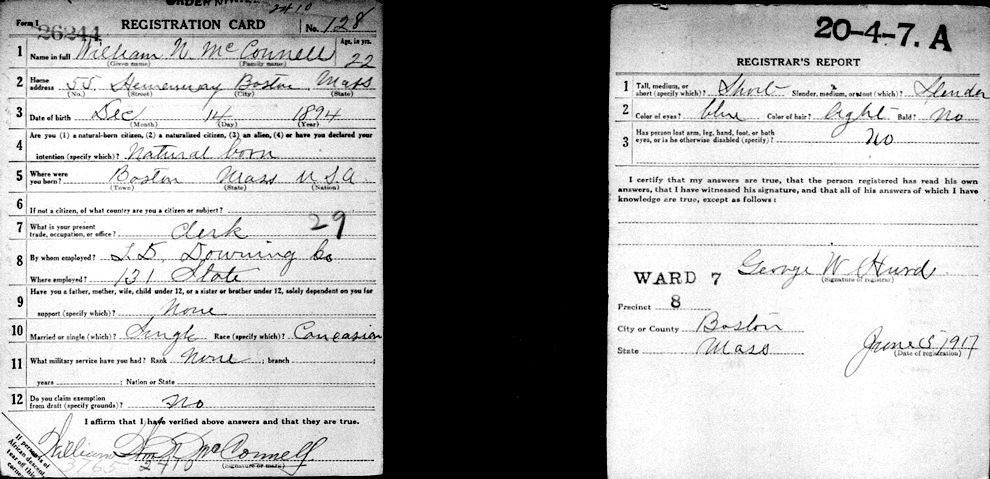 2410
Form 1 26244 REGISTRATION CARD No. 128
1 Name in full William N. McConnell Age, in yrs. 22
(Given name) (Family name)
2 Home address 55 Hemenway Boston Mass
(No.) (Street) (City) (State)
3 Date of birth Dec 14 1894
(Month) (Day) (Year)
4 Are you (1) a natural-born citizen, (2) a naturalized citizen, (3) an alien, (4) or have you declared your
intention (specify which)? Natural born
5 Where were you born? Boston Mass U S A
(Town) (State) (Nation)
6 If not a citizen, of what country are you a citizen or subject?
7 What is your present trade, occupation, or office? Clerk 29
8 By whom employed? Downing Co
Where employed? 131 State
9 Have you a father, mother, wife, child under 12, or a sister or brother under 12, solely dependent on you for
support (specify which)? None
10 Married or single (which)? Single Race (specify which)? Caucasion
11 What military service have you had? Rank None ; branch
years ; Nation or State
12 Do you claim exemption from draft (specify grounds)? No
I affirm that I have verified above answers and that they are true.
William McConnell
(Signature or mark)
3765 2410
If person is of African descent, tear off this corner
20-4-7. A
REGISTRAR'S REPORT
1 Tall, medium, or short (specify which)? Short Slender, medium, or stout (which)? Slender
2 Color of eyes? blue Color of hair? light Bald? No
3 Has person lost arm, leg, hand, foot, or both eyes, or is he otherwise disabled (specify)? No
I certify that my answers are true, that the person registered has read his own
answers, that I have witnessed his signature, and that all of his answers of which I have
knowledge are true, except as follows:
George W Hurd
(Signature of registrar)
WARD 7
Precinct 8
City or County Boston
State Mass June 5 1917
(Date of registration)